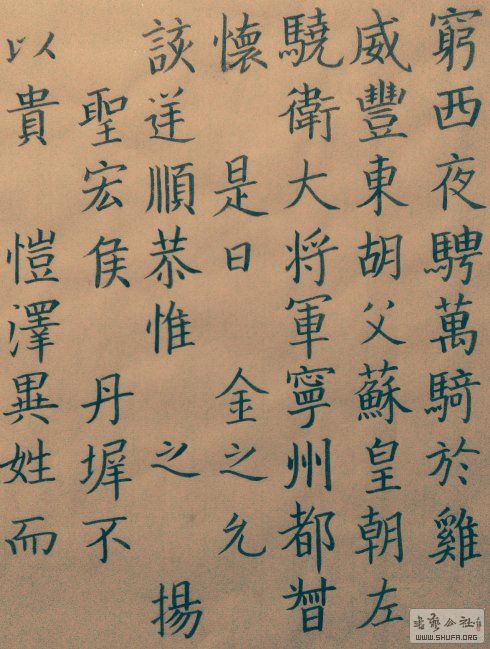 窮西夜騁萬騎於雞
威豐東胡父蘇皇朝左
驍衛大将軍寧州都督
懷 是日 金之允
該逆順恭惟 之 揚
聖宏侯 丹墀不
以貴 愷澤異姓而
书艺公社
WWW.SHUFA.ORG